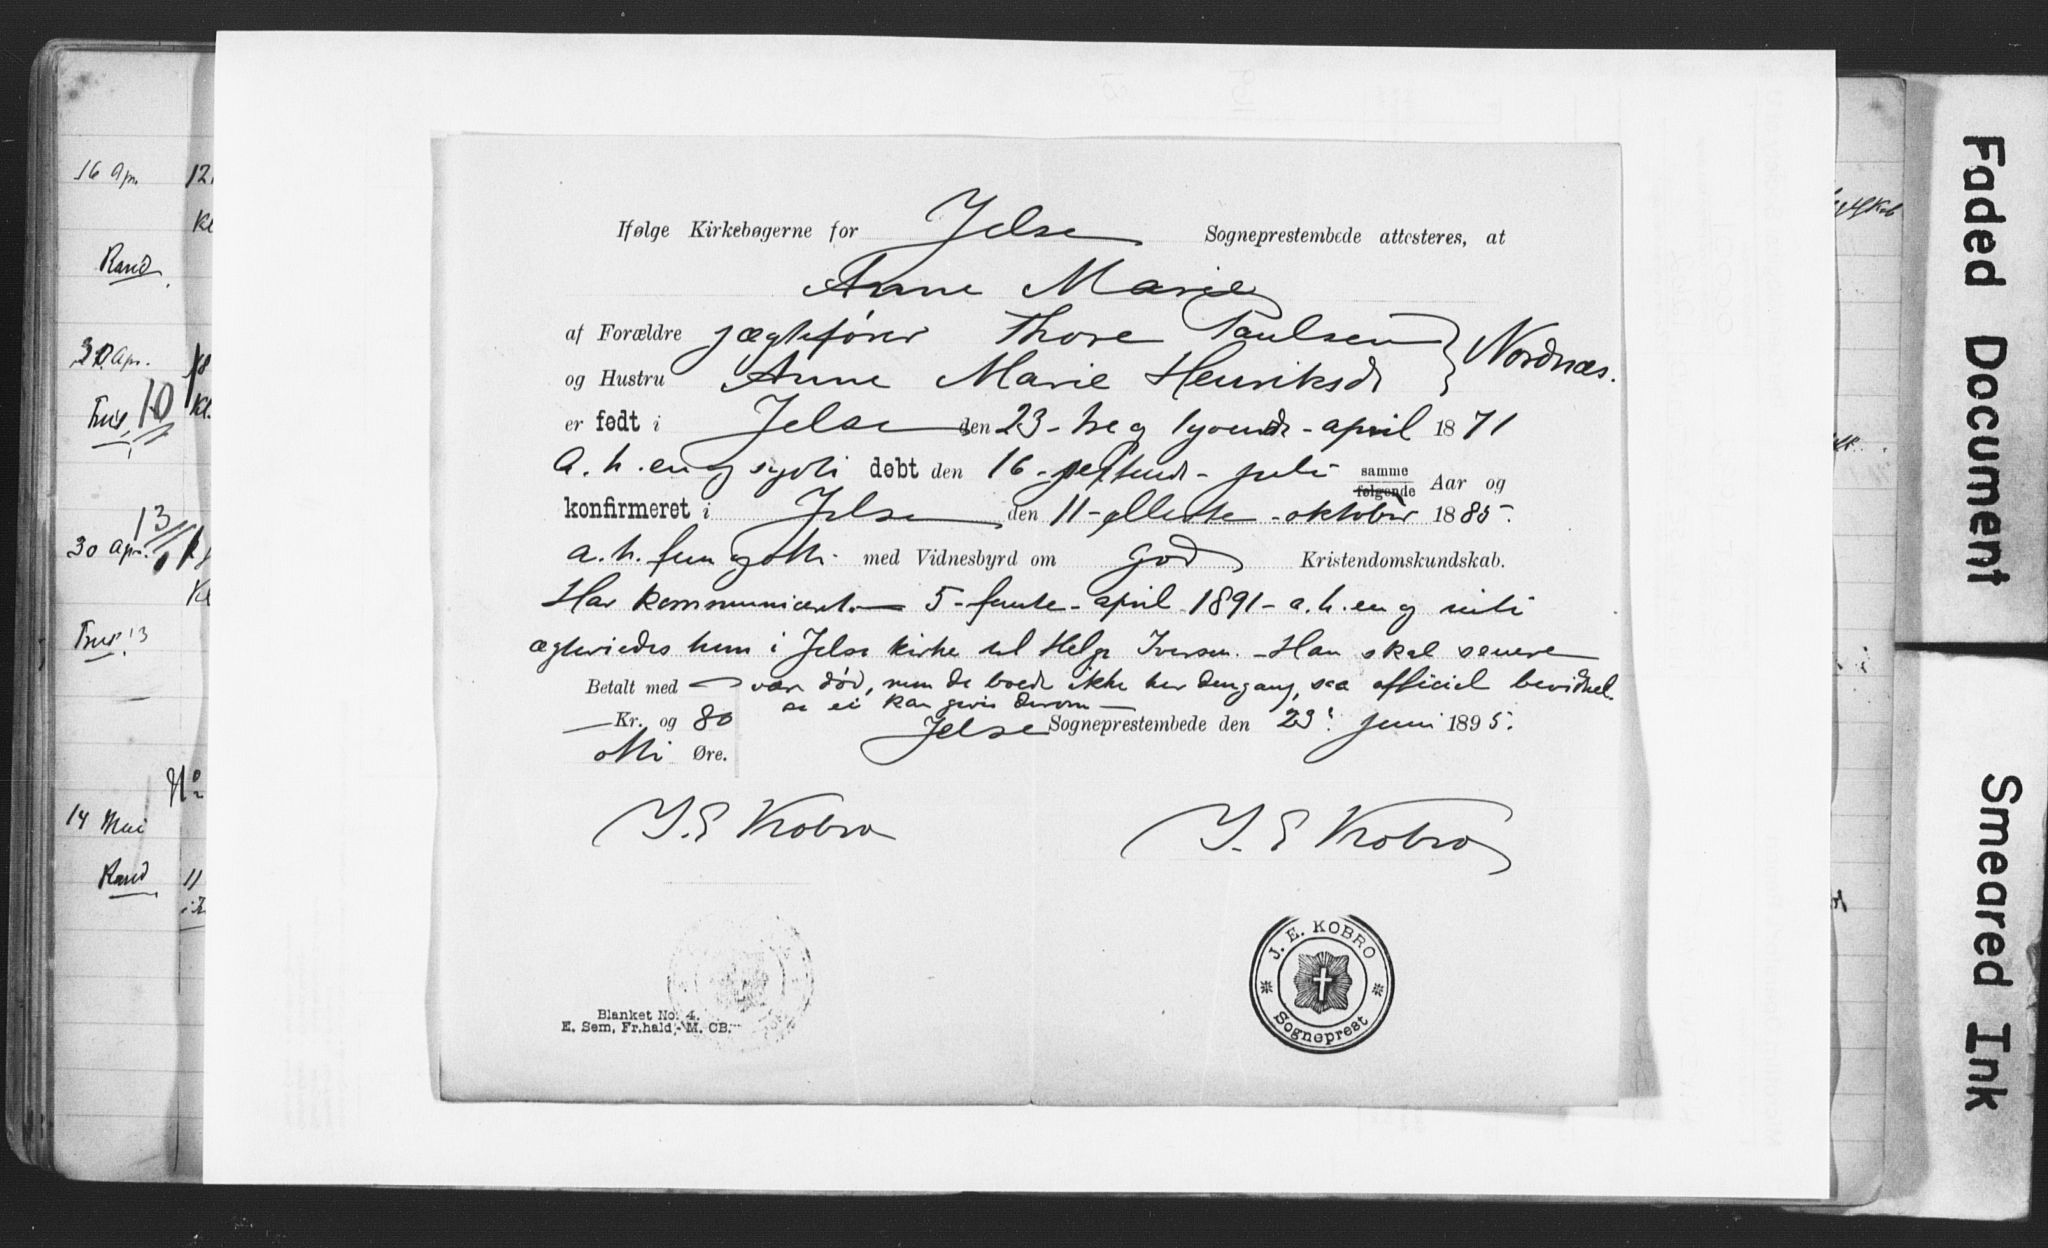 Ifølge Kirkebøgerne for Jelse Sogneprestembede attesteres, at
Anne Marie
af Forældre jægtefører Thore Paulsen
og Hustru Anne Marie Henriksd Nordnæs.
er født i Jelse den 23 - tre og tyvende - april 1871
a. h. en og sytti døbt den 16 - sextende - juli samme følgende Aar og
konfirmeret i Jelse den 11 - ellevte - oktober 1885.
a. h. fem og otti med Vidnesbyrd om god Kristendomskundskab.
Har kommuniceret 5 - femte - april 1891 - a. h. en og nitti
ægteviedes hun i Jelse kirke til Helge Iversen. - Han skal senere
Betalt med være død, men de boede ikke her dengang, saa officiel bevidnel
se ei kan gives derom
Kr. og 80 Jelse Sogneprestembede den 23 juni 1895.
otti Øre.
J. E Kobro J. E Kobro
J. E. KOBRO
Sogneprest
Blanket No. 4.
E. Sem, Fr.hald, M. CB.
16 Apr. 12
Kl
Rand
30 Apr. 18
10 Kl.
Trus
13
30 Apr.
Kl
Trus 13
No
14 Mai
Rand 11
Faded Document
Smeared Ink